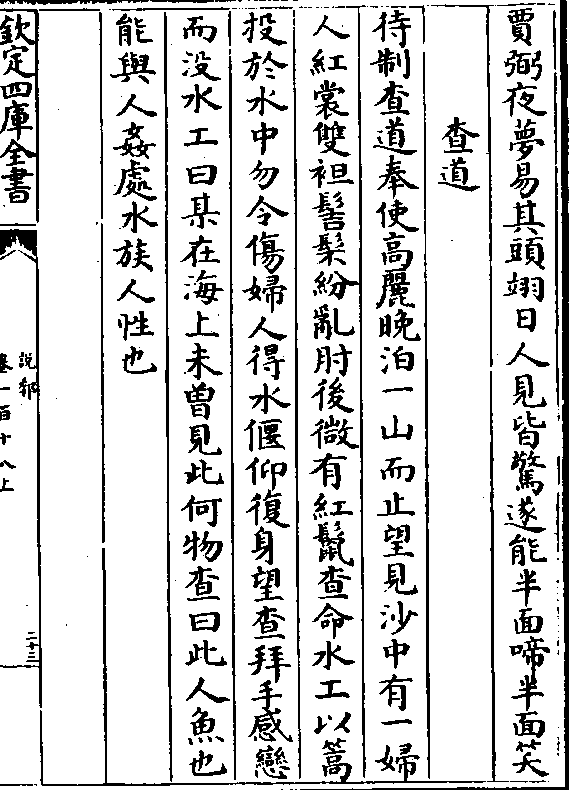 賈弼夜夢易其頭翊日人見皆驚遂能半面啼半面笑
查道
待制查道奉使高麗晚泊一山而止望見沙中有一婦
人紅裳雙袒髻鬟紛亂肘後微有紅鬛查命水工以篙
投於水中勿令傷婦人得水偃仰復身望查拜手感戀
而没水工曰某在海上未曽見此何物查曰此人魚也
能與人姦處水族人性也
欽定四庫全書
說郛
卷一百十八上
二十三